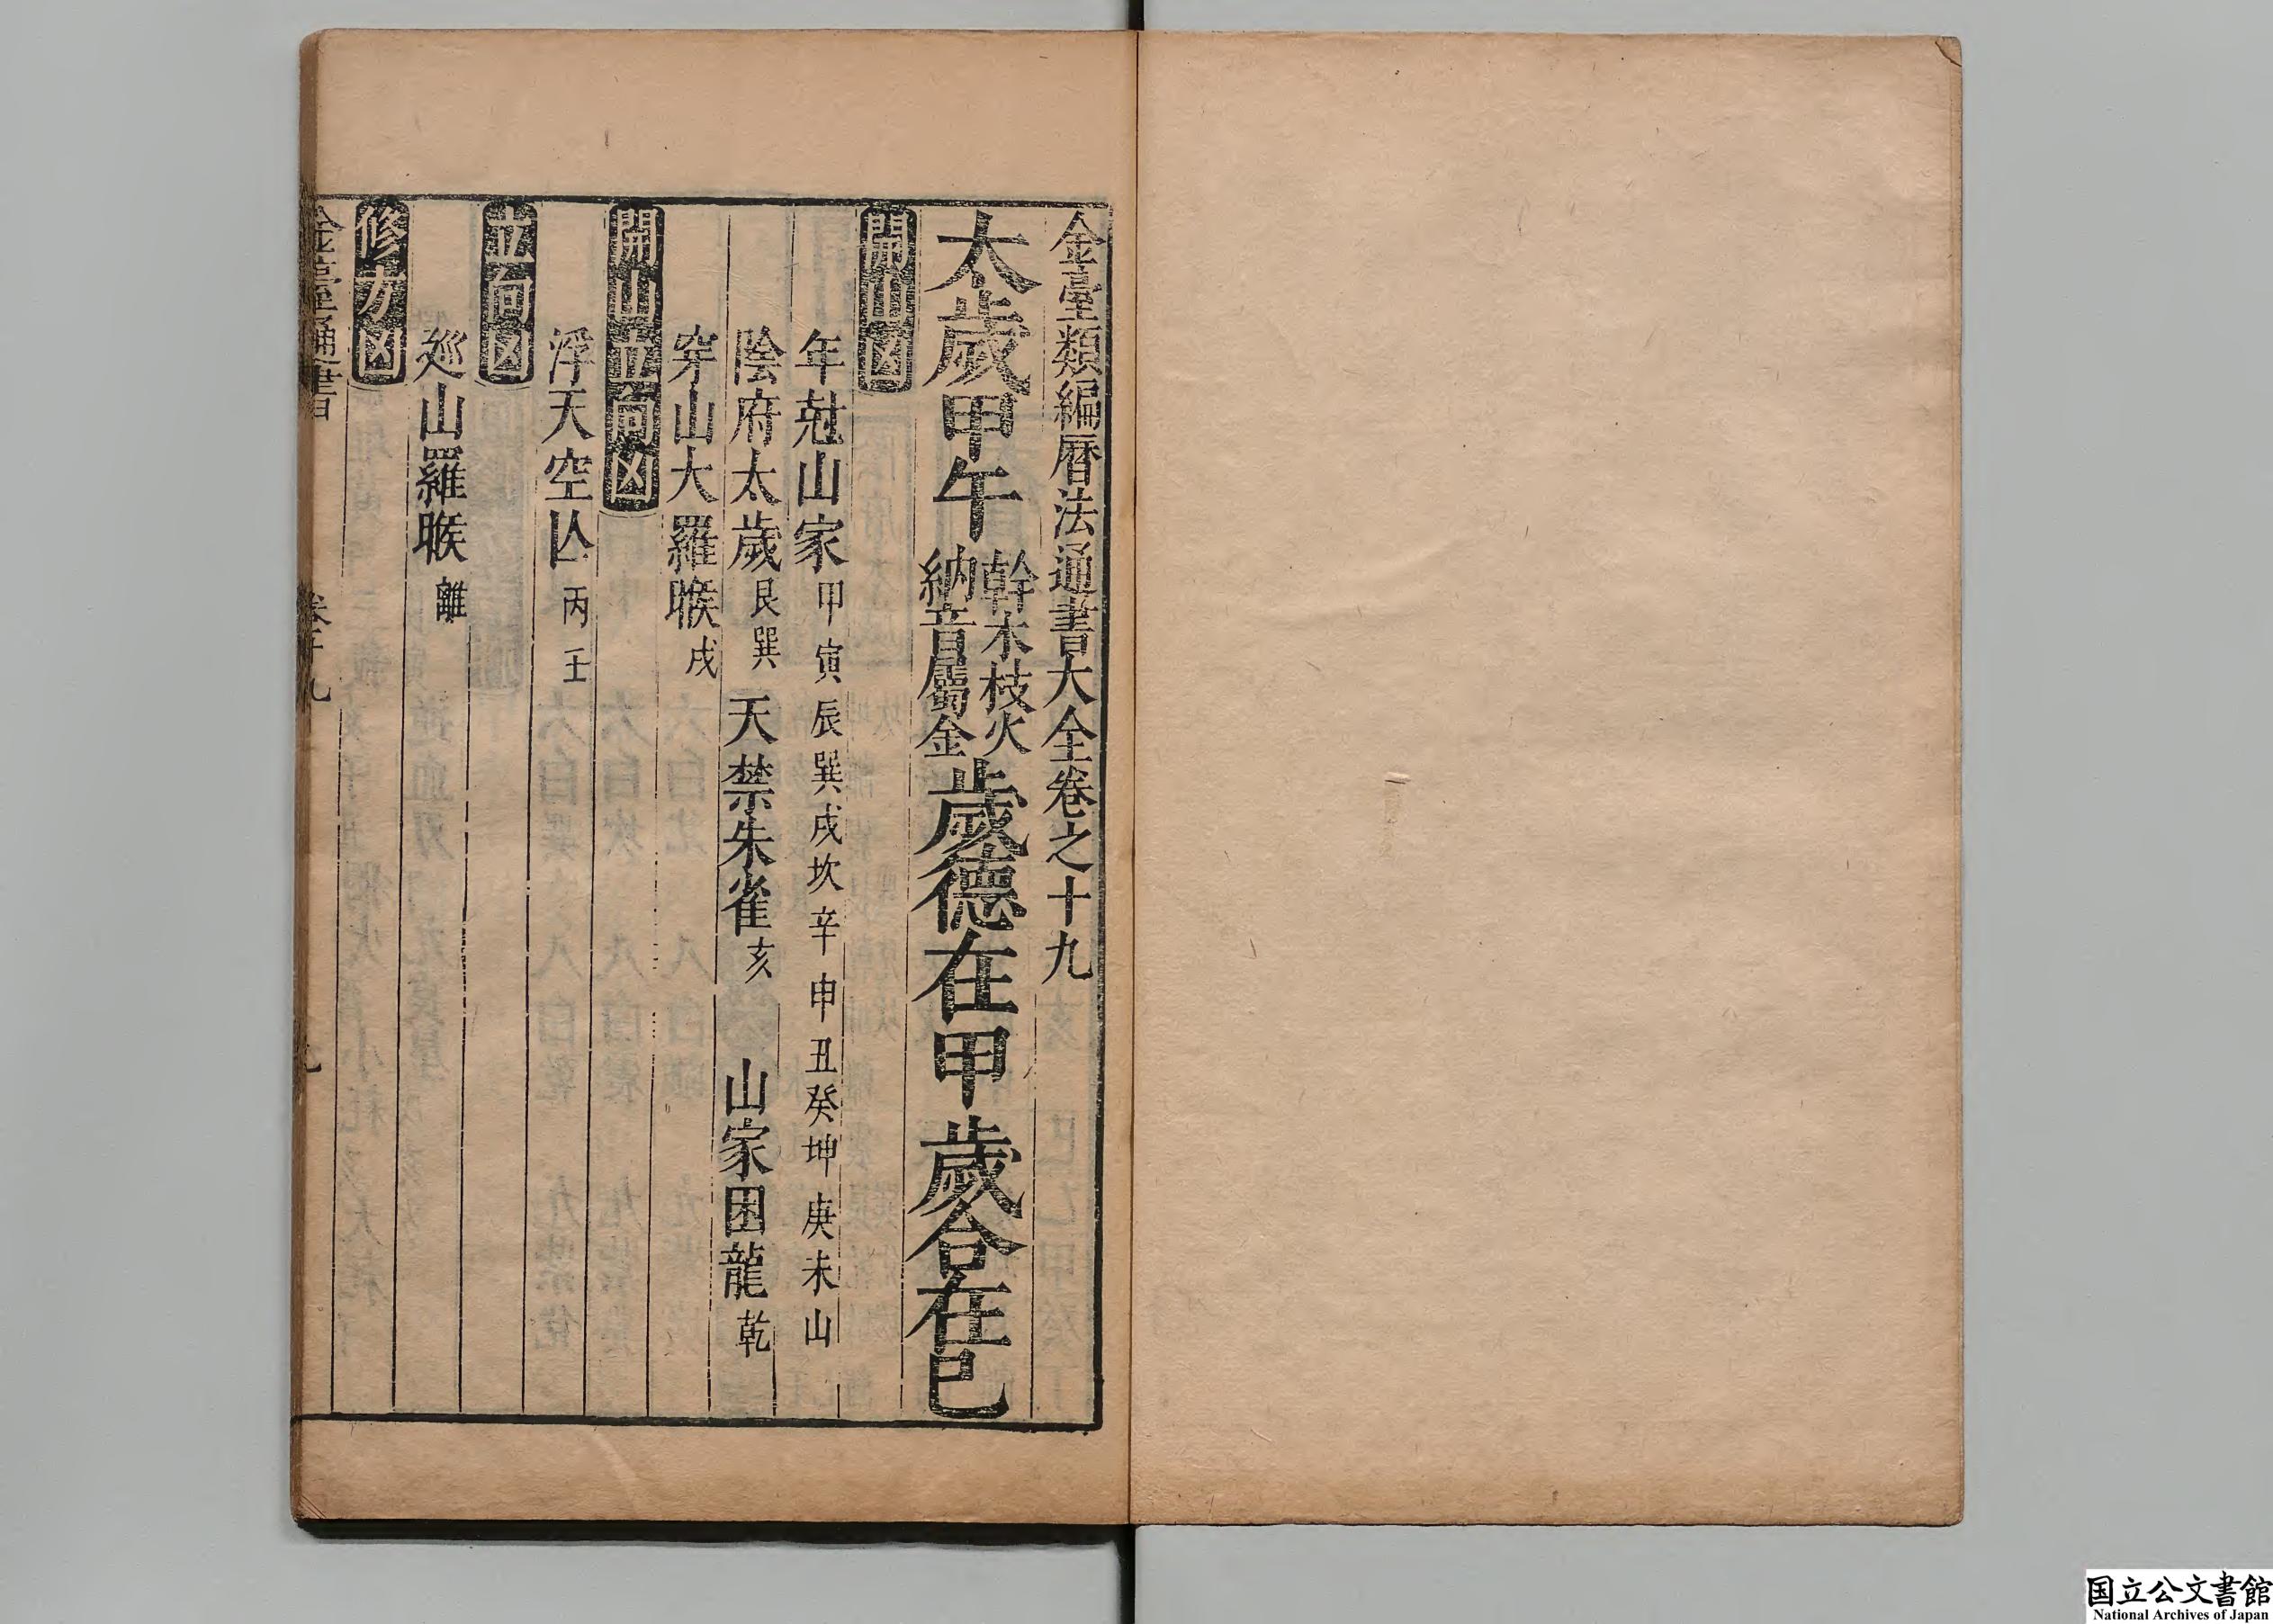 金臺類編曆法通書大全卷之十九
太歲甲午 幹木枝火 納音屬金 歲德在甲 歲合在巳
開山凶
年尅山家 甲寅辰巽戌坎辛申丑癸坤庚未山
陰府太歲 艮巽 天禁朱雀 亥 山家困龍 乾
穿山大羅睺 戌
開山立向凶
浮天空亾 丙壬
立向凶
巡山羅睺 離
修方凶
金臺通書 卷十九
国立公文書館
National Archives of Japan